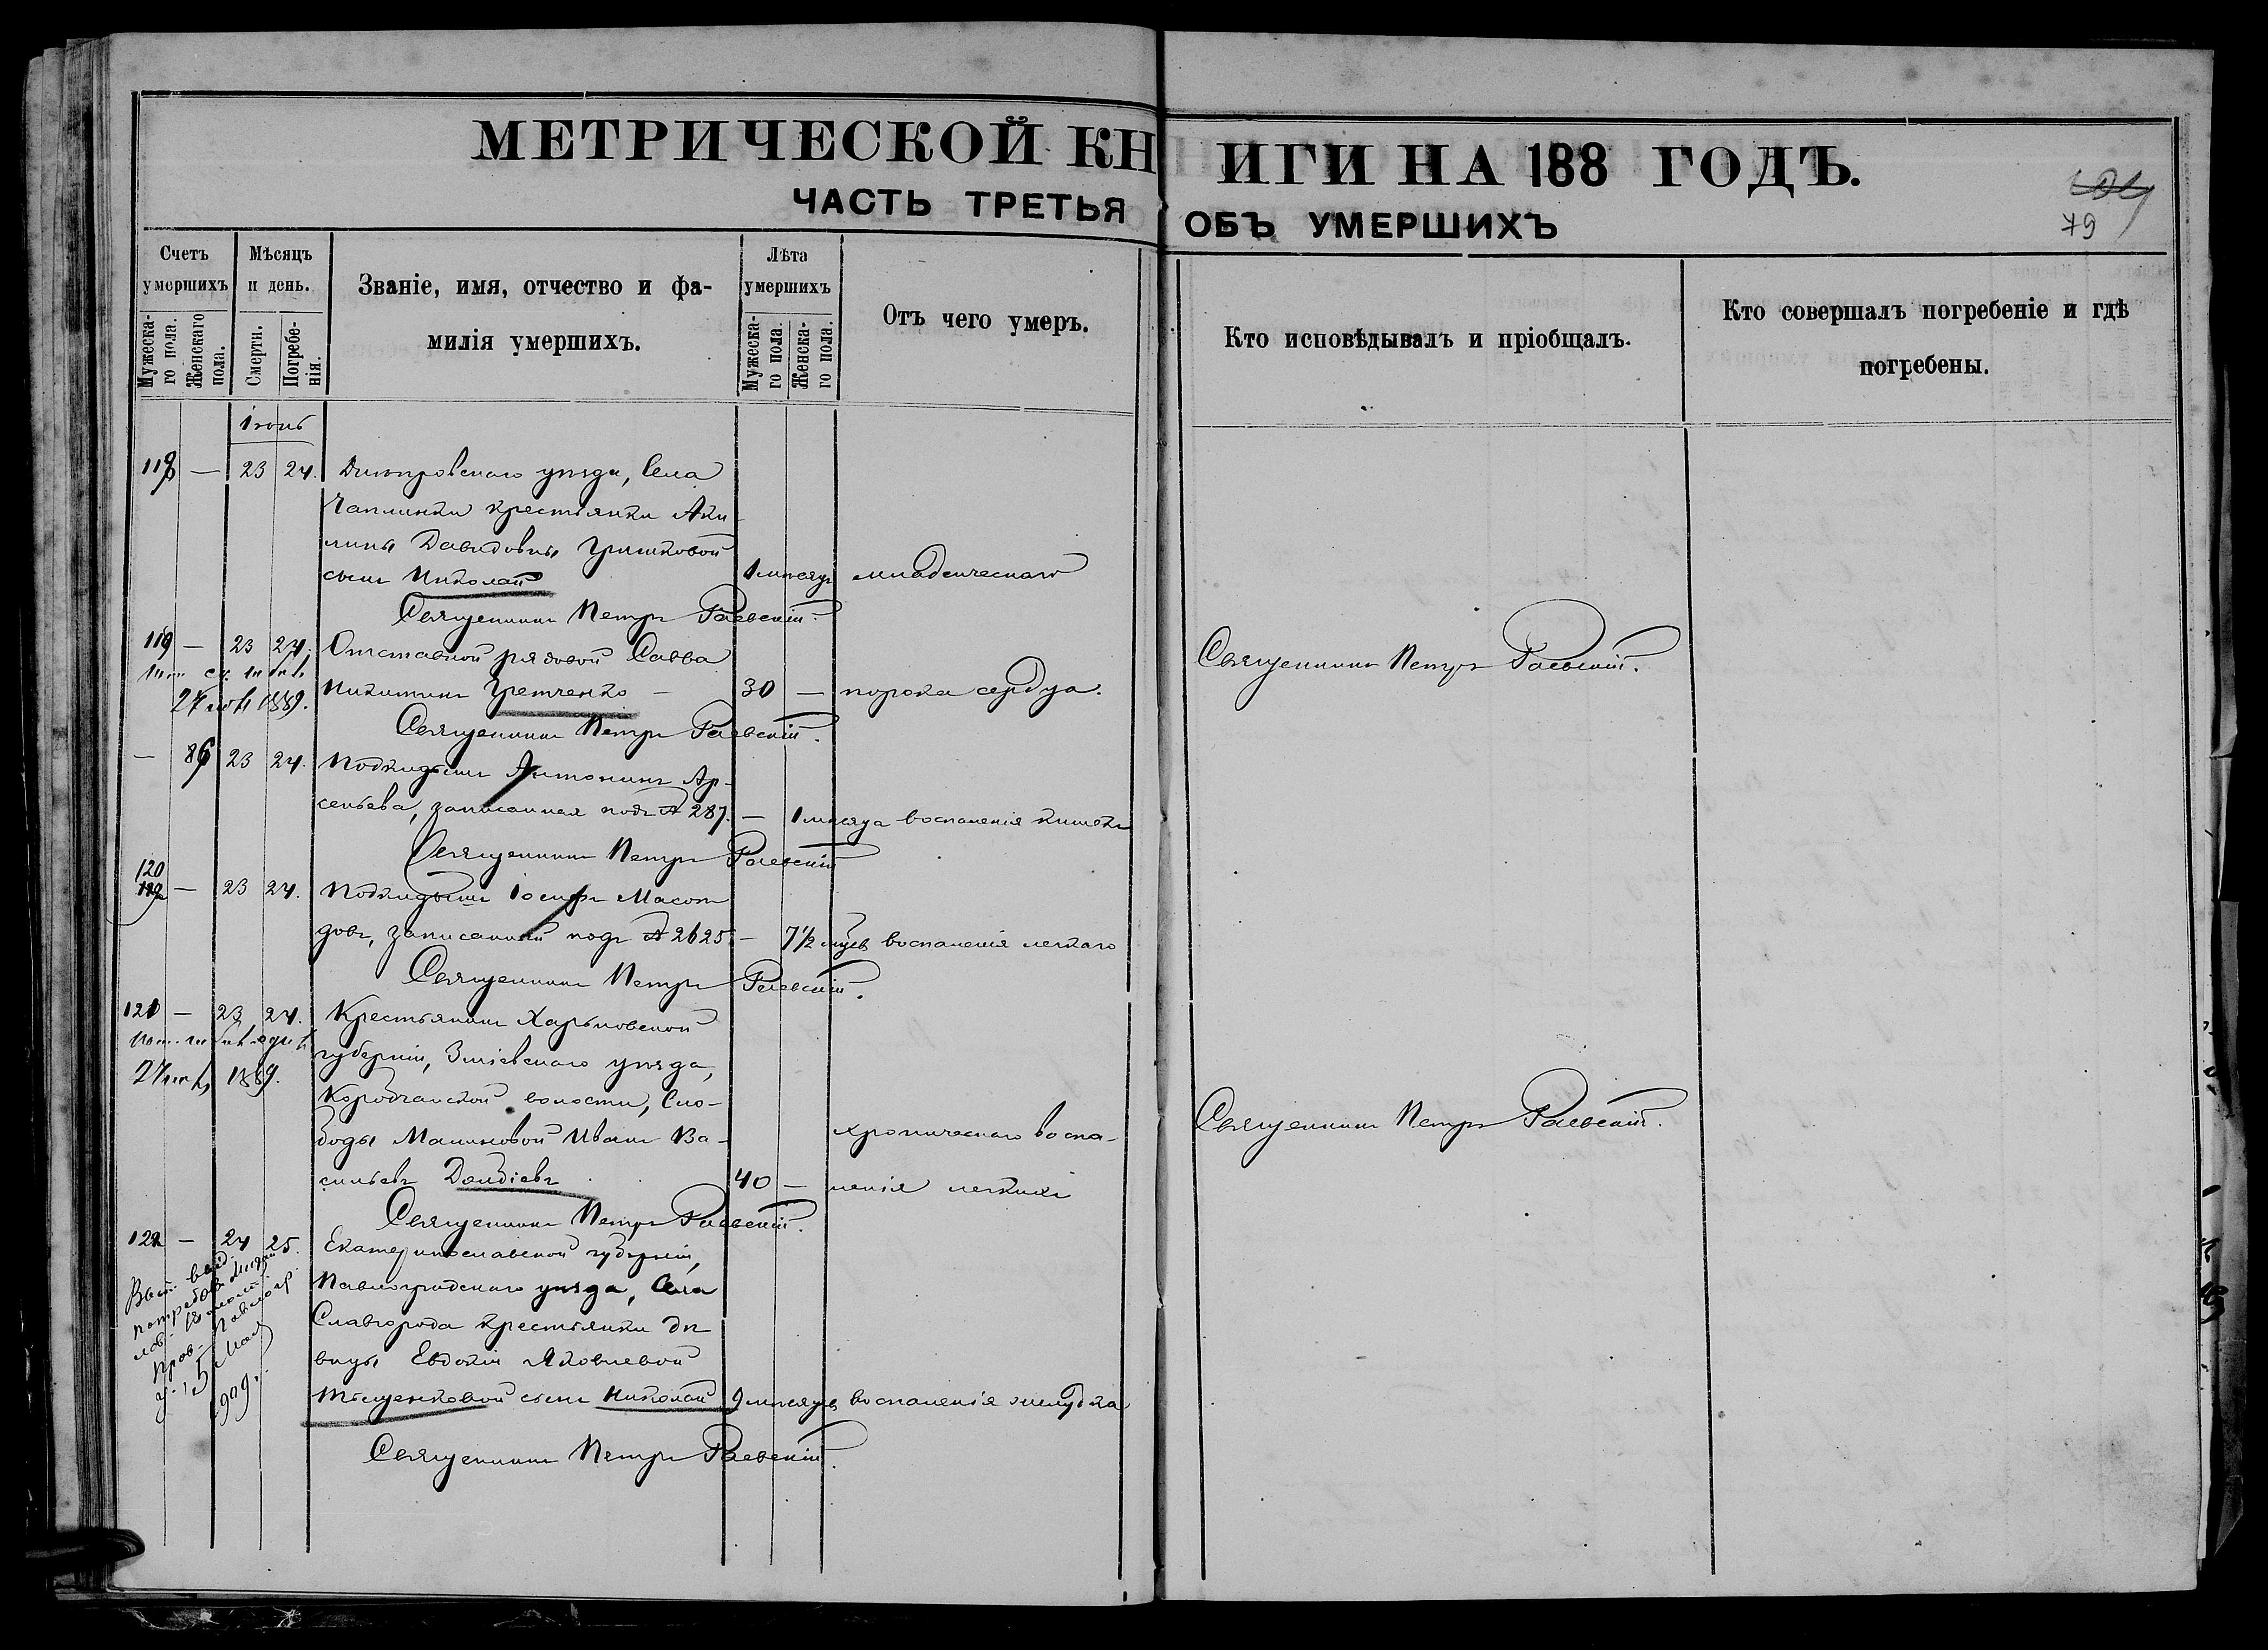 МЕТРИЧЕСКОЙ КНИГИ НА 188 ГОДЪ.
ЧАСТЬ ТРЕТЬЯ ОБЪ УМЕРШИХЪ
79
Счетъ умершихъ
Мужеска-
го пола.
Женскаго
пола.
Мѣсяцъ и день.
Смерти.
Погребе-
нія.
Званіе, имя, отчество и фа-
милія умершихъ.
Лѣта умершихъ
Мужеска-
го пола.
Женска-
го пола.
Отъ чего умеръ.
Кто исповѣдывалъ и пріобщалъ.
Кто совершалъ погребеніе и гдѣ
погребены.
Іюнь
118 — 23 24. Днѣпровскаго уѣзда, Села
Чаплинки крестьянки Аки-
лины Давидовны Гришковой
сынъ Николай 1 мѣсяцъ младенческаго
Священникъ Петръ Раевскій.
119 — 23 24. Отставной рядовой Савва
Никитинъ Гретченко — 30 — порока сердца.
27 1889.
Священникъ Петръ Раевскій.
Священникъ Петръ Раевскій.
— 86 23 24. Подкидышъ Антонина Ар-
сеньева, записанная подъ № 287. — 1 мѣсяца воспаленія кишекъ
Священникъ Петръ Раевскій
120 — 23 24. Подкидышъ Іосифъ
записанный подъ № 2625 — 7½ мѣсяц воспаленія легкаго
Священникъ Петръ Раевскій.
121 — 23 24. Крестьянинъ Харьковской
губерніи, Зміевскаго уѣзда,
27 1889.
волости, Сло-
боды Малиновой Иванъ Ва- хроническаго воспа-
сильевъ 40 — ленія легкихъ
Священникъ Петръ Раевскій.
Священникъ Петръ Раевскій.
122 — 24 25. Екатеринославской губерніи,
Павлоградскаго уѣзда, Села
Славгорода крестьянки дѣ-
вицы Евдокіи Яковлевой
Тыщенковой сынъ Николай 9 мѣсяцевъ воспаленія желудка
5 Мая
1909.
Священникъ Петръ Раевскій.